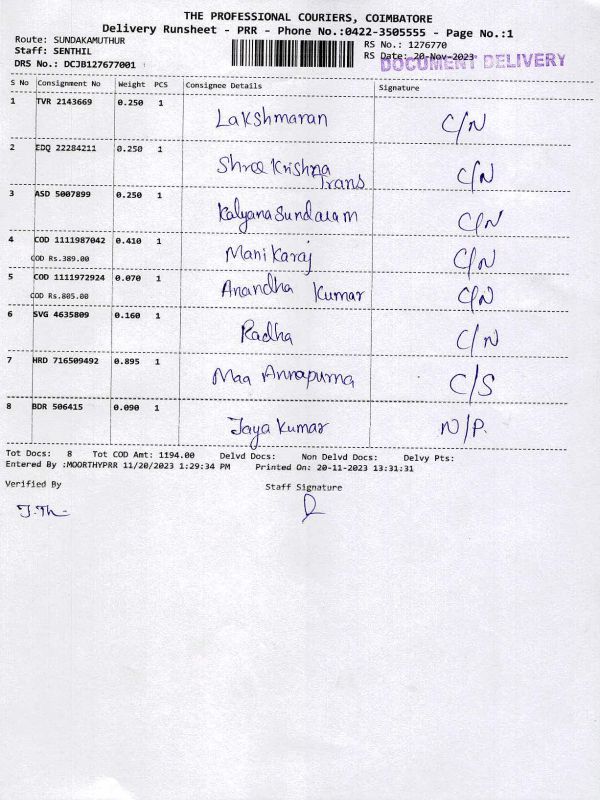 THE PROFESSIONAL COURIERS, COIMBATORE
Delivery Runsheet - PRR - Phone No.:0422-3505555 - Page No.:1
Route: SUNDAKAMUTHUR
RS No.: 1276770
Staff: SENTHIL
RS Date: 20-Nov-2023
DOCUMENT DELIVERY
DRS No.: DCJB127677001
S No Consignment No Weight PCS Consignee Details Signature
1 TVR 2143669 0.250 1 Lakshmanan C/N
2 EDQ 22284211 0.250 1 Shree Krishna Trans C/N
3 ASD 5007899 0.250 1 Kalyana Sundaram C/N
4 COD 1111987042 0.410 1 Manikaraj C/N
COD Rs.389.00
5 COD 1111972924 0.070 1 Anandha Kumar C/N
COD Rs.805.00
6 SVG 4635809 0.160 1 Radha C/N
7 HRD 716509492 0.895 1 Maa Annapurna C/S
8 BDR 506415 0.090 1 Jaya Kumar N/P.
Tot Docs: 8 Tot COD Amt: 1194.00 Delvd Docs: Non Delvd Docs: Delvy Pts:
Entered By :MOORTHYPRR 11/20/2023 1:29:34 PM Printed On: 20-11-2023 13:31:31
Verified By Staff Signature